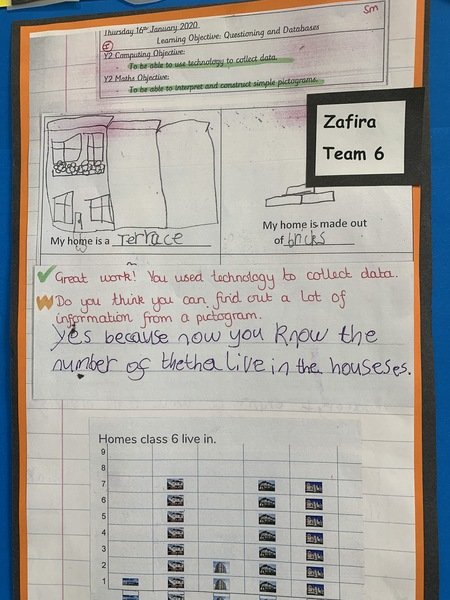 Thursday 16th January 2020
Sm
Learning Objective: Questioning and Databases
I
Y2 Computing Objective:
- To be able to use technology to collect data.
Y2 Maths Objective:
- To be able to interpret and construct simple pictograms.
Zafira
Team 6
My home is a Terrace
My home is made out
of bricks
Great work! You used technology to collect data.
Do you think you can find out a lot of
information from a pictogram.
Yes because now you know the
number of thetha live in the houseses.
Homes class 6 live in.
9
8
7
6
5
4
3
2
1